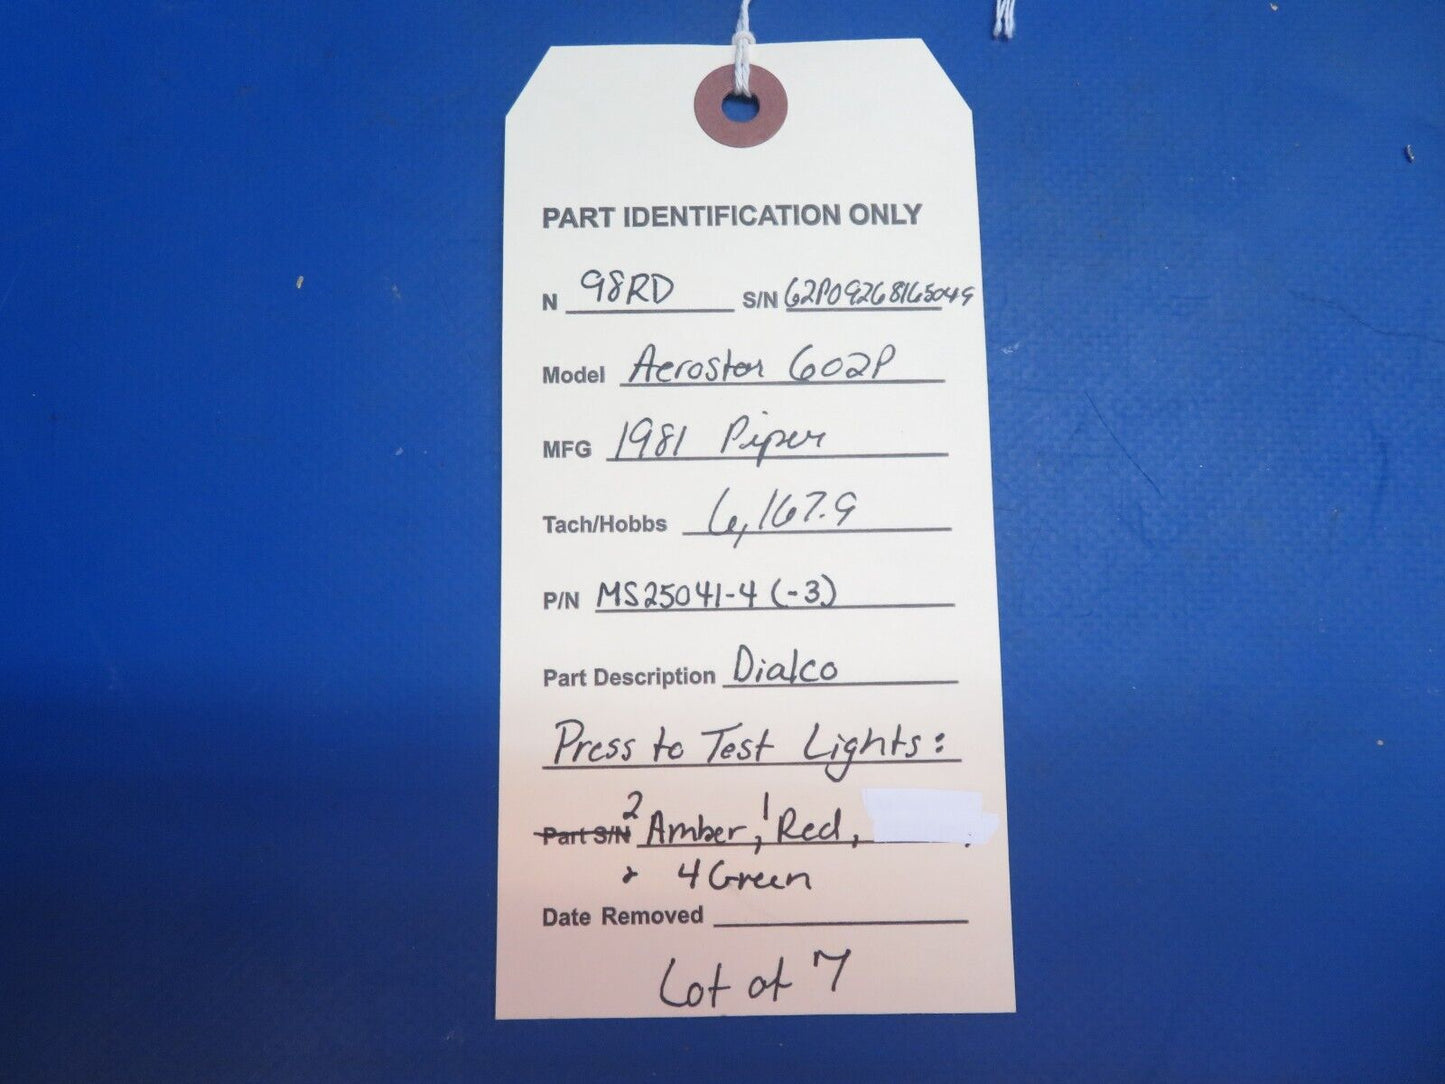 PART IDENTIFICATION ONLY
N 98RD S/N 62P09268165049
Model Aerostar 602P
MFG 1981 Piper
Tach/Hobbs 6,167.9
P/N MS25041-4 (-3)
Part Description Dialco
Press to Test Lights:
Part S/N 2 Amber, 1 Red,
4 Green
Date Removed
Lot of 7